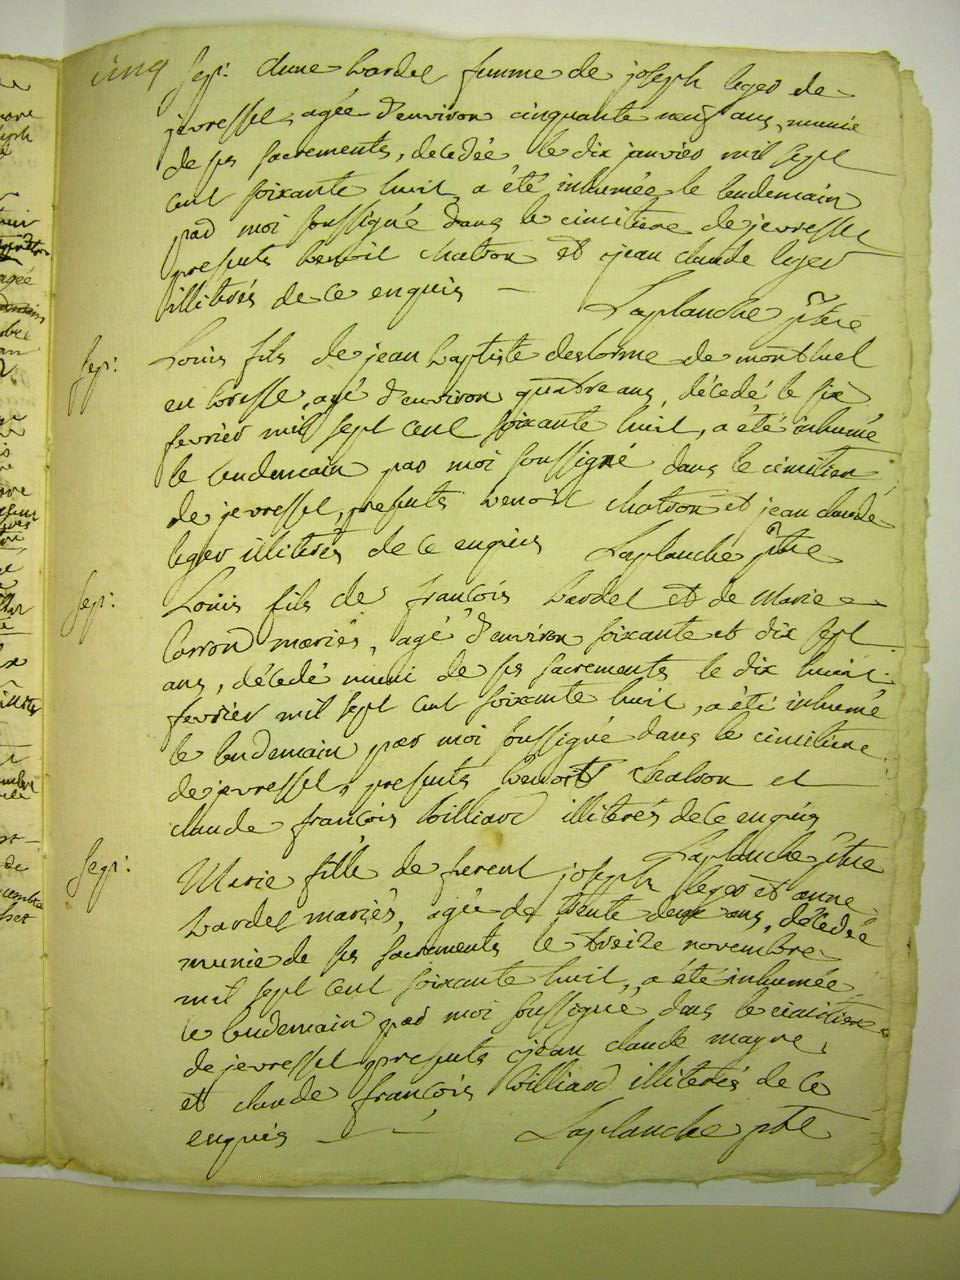 cinq
Sep: Anne bardel femme de joseph leger de
jevressel, agée d'environ cinquante neuf ans, munie
de ses sacrements, decedée le dix janvier mil sept
cent soixante huit, a été inhumée le lendemain
par moi soussigné dans le cimitiere de jevressel
presents benoit chatron et jean claude leger
illiterés de ce enquis
Laplanche ptre
Sep: Louis fils de jean baptiste deslorme de montluel
en bresse, agé d'environ quatre ans, décédé le six
fevrier mil sept cent soixante huit, a été inhumé
le lendemain par moi soussigné dans le cimitiere
de jevressel, presents benoit chatron et jean claude
leger illiterés de ce enquis Laplanche ptre
Sep: Louis fils de françois bardel et de Marie
Carron mariés, agé d'environ soixante et dix sept
ans, décédé muni de ses sacrements le dix huit
fevrier mil sept cent soixante huit, a été inhumé
le lendemain par moi soussigné dans le cimitiere
de jevressel, presents benoit chatron et
claude françois billiard illiterés de ce enquis
Laplanche ptre
Sep: Marie fille de joseph leger et anne
bardel mariés, agée de trente deux ans, décédée
munie de ses sacrements le treize novembre
mil sept cent soixante huit, a été inhumée
le lendemain par moi soussigné dans le cimitiere
de jevressel presents jean claude mayre,
et claude françois billiard illiterés de ce
enquis Laplanche ptre